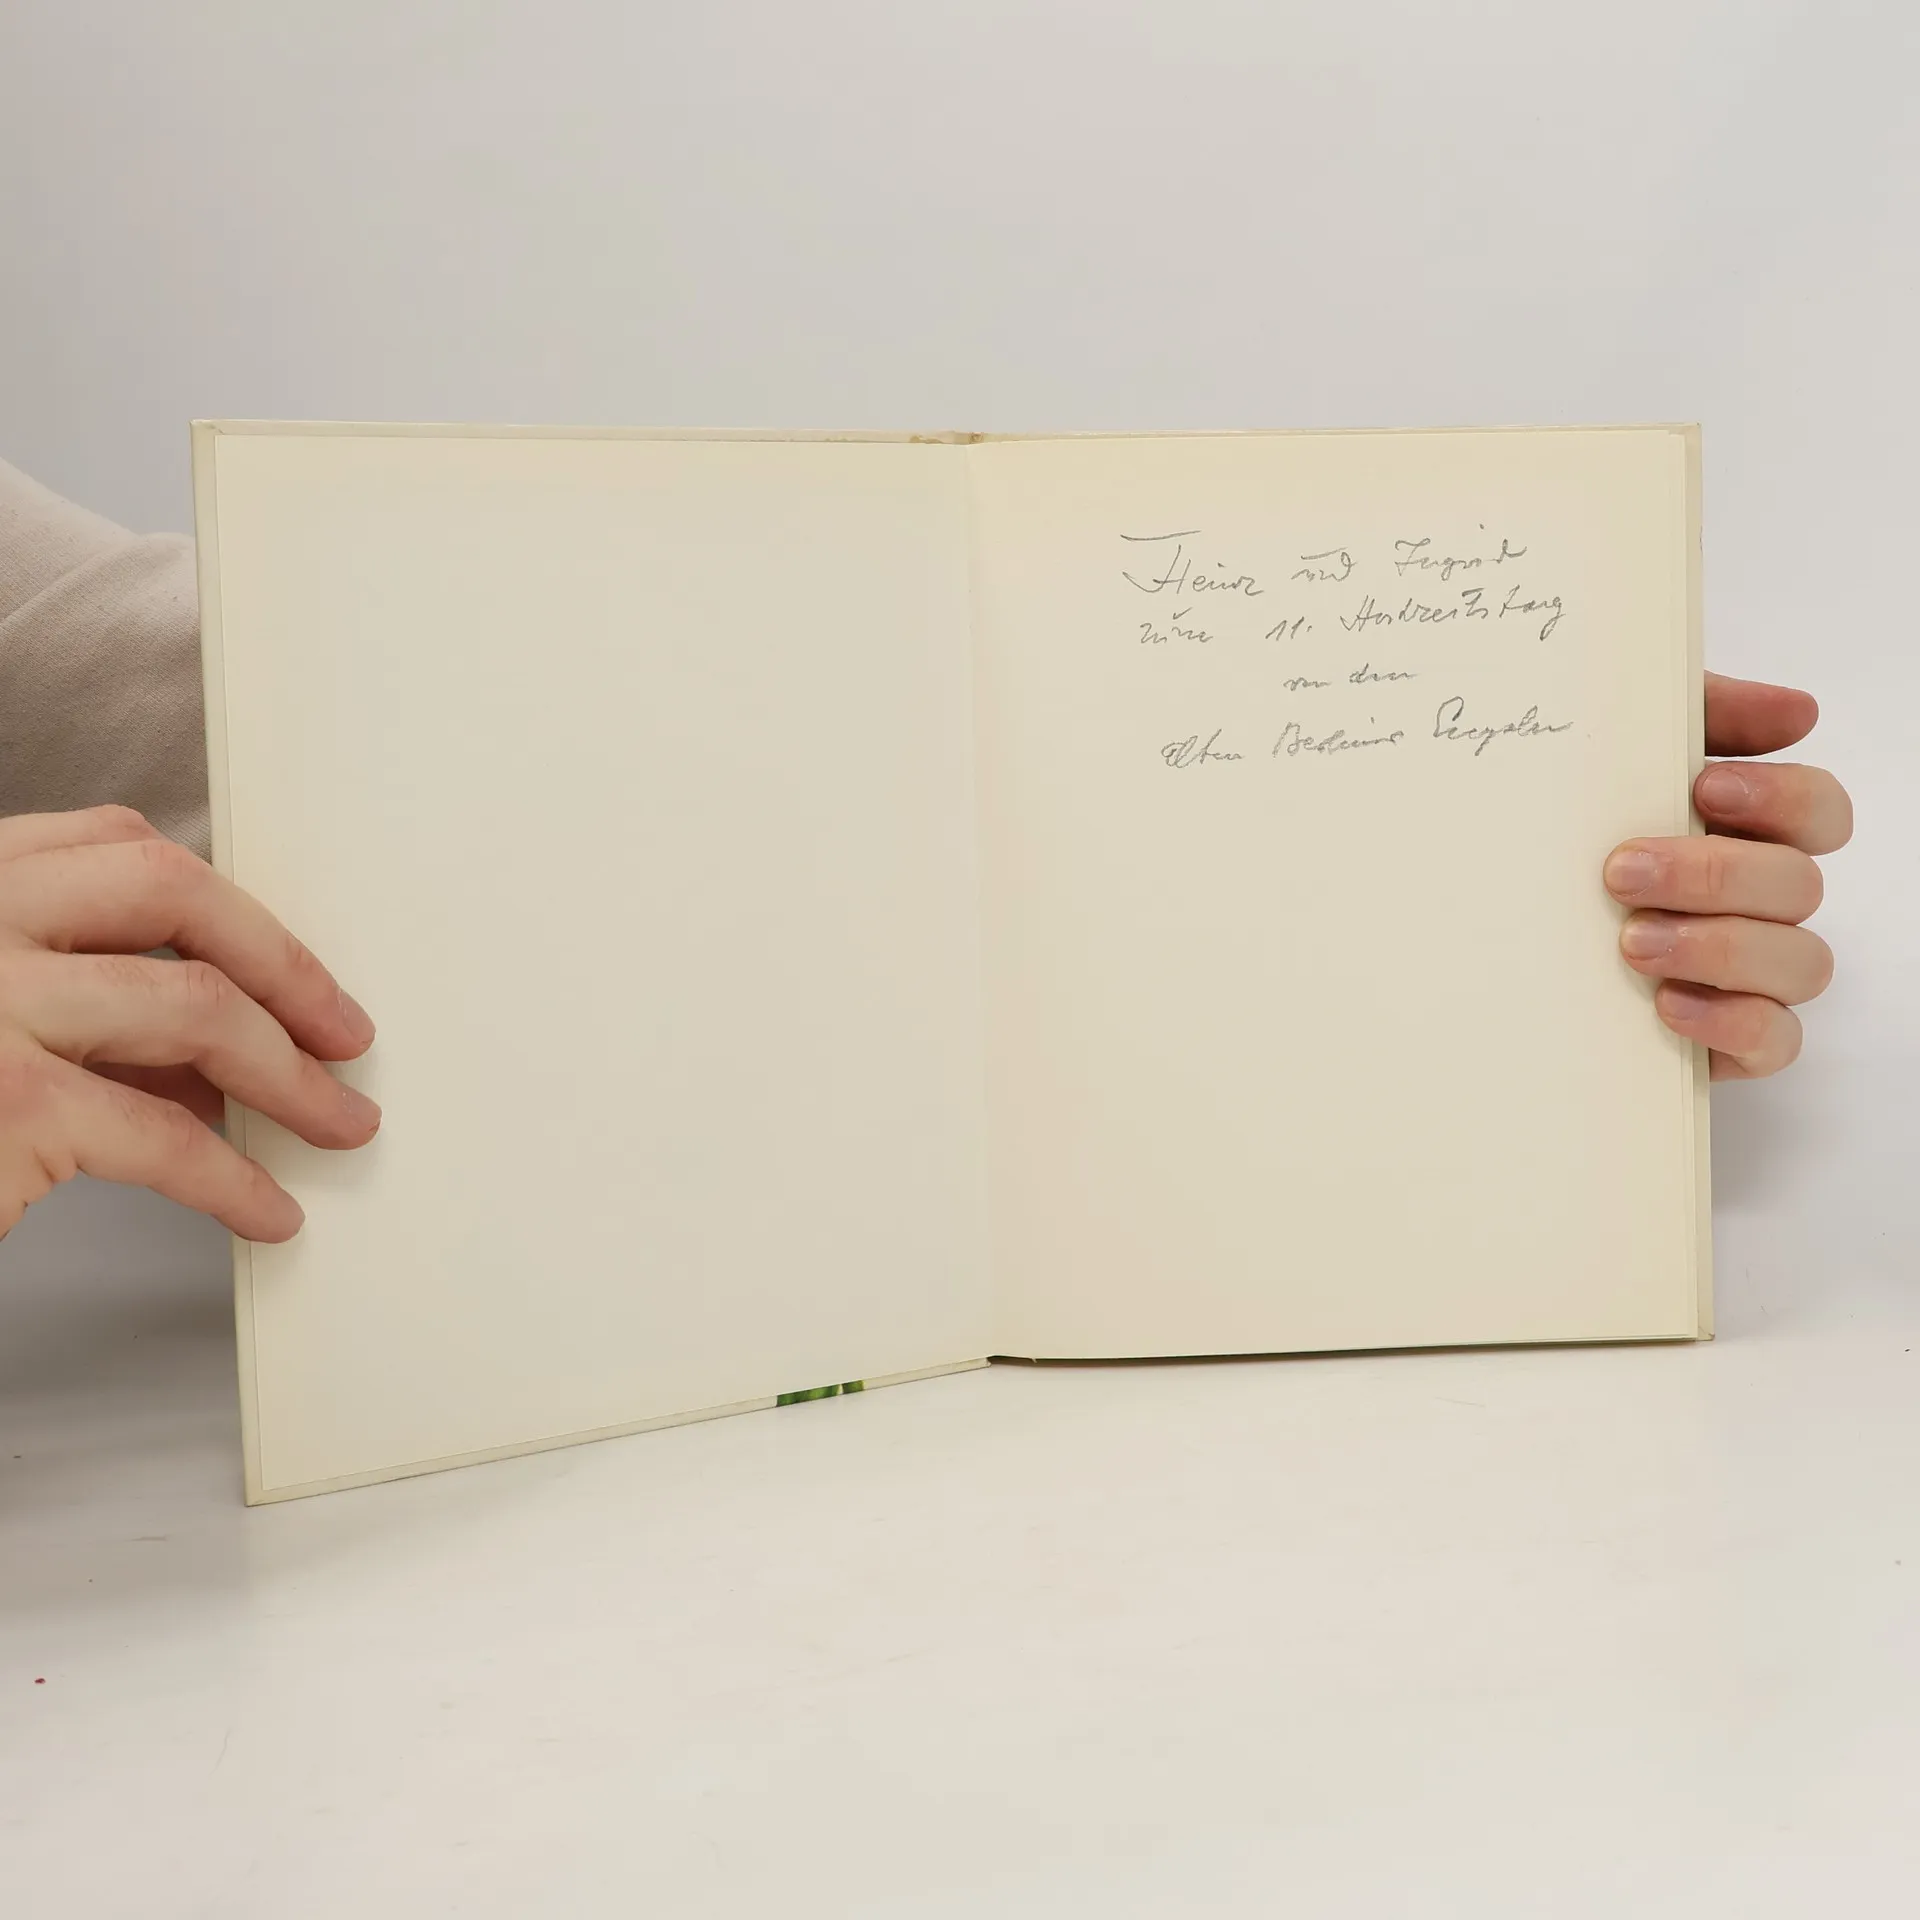 Heinz und Ingrid
zum 11. Hochzeitstag
von den
alten Berliner